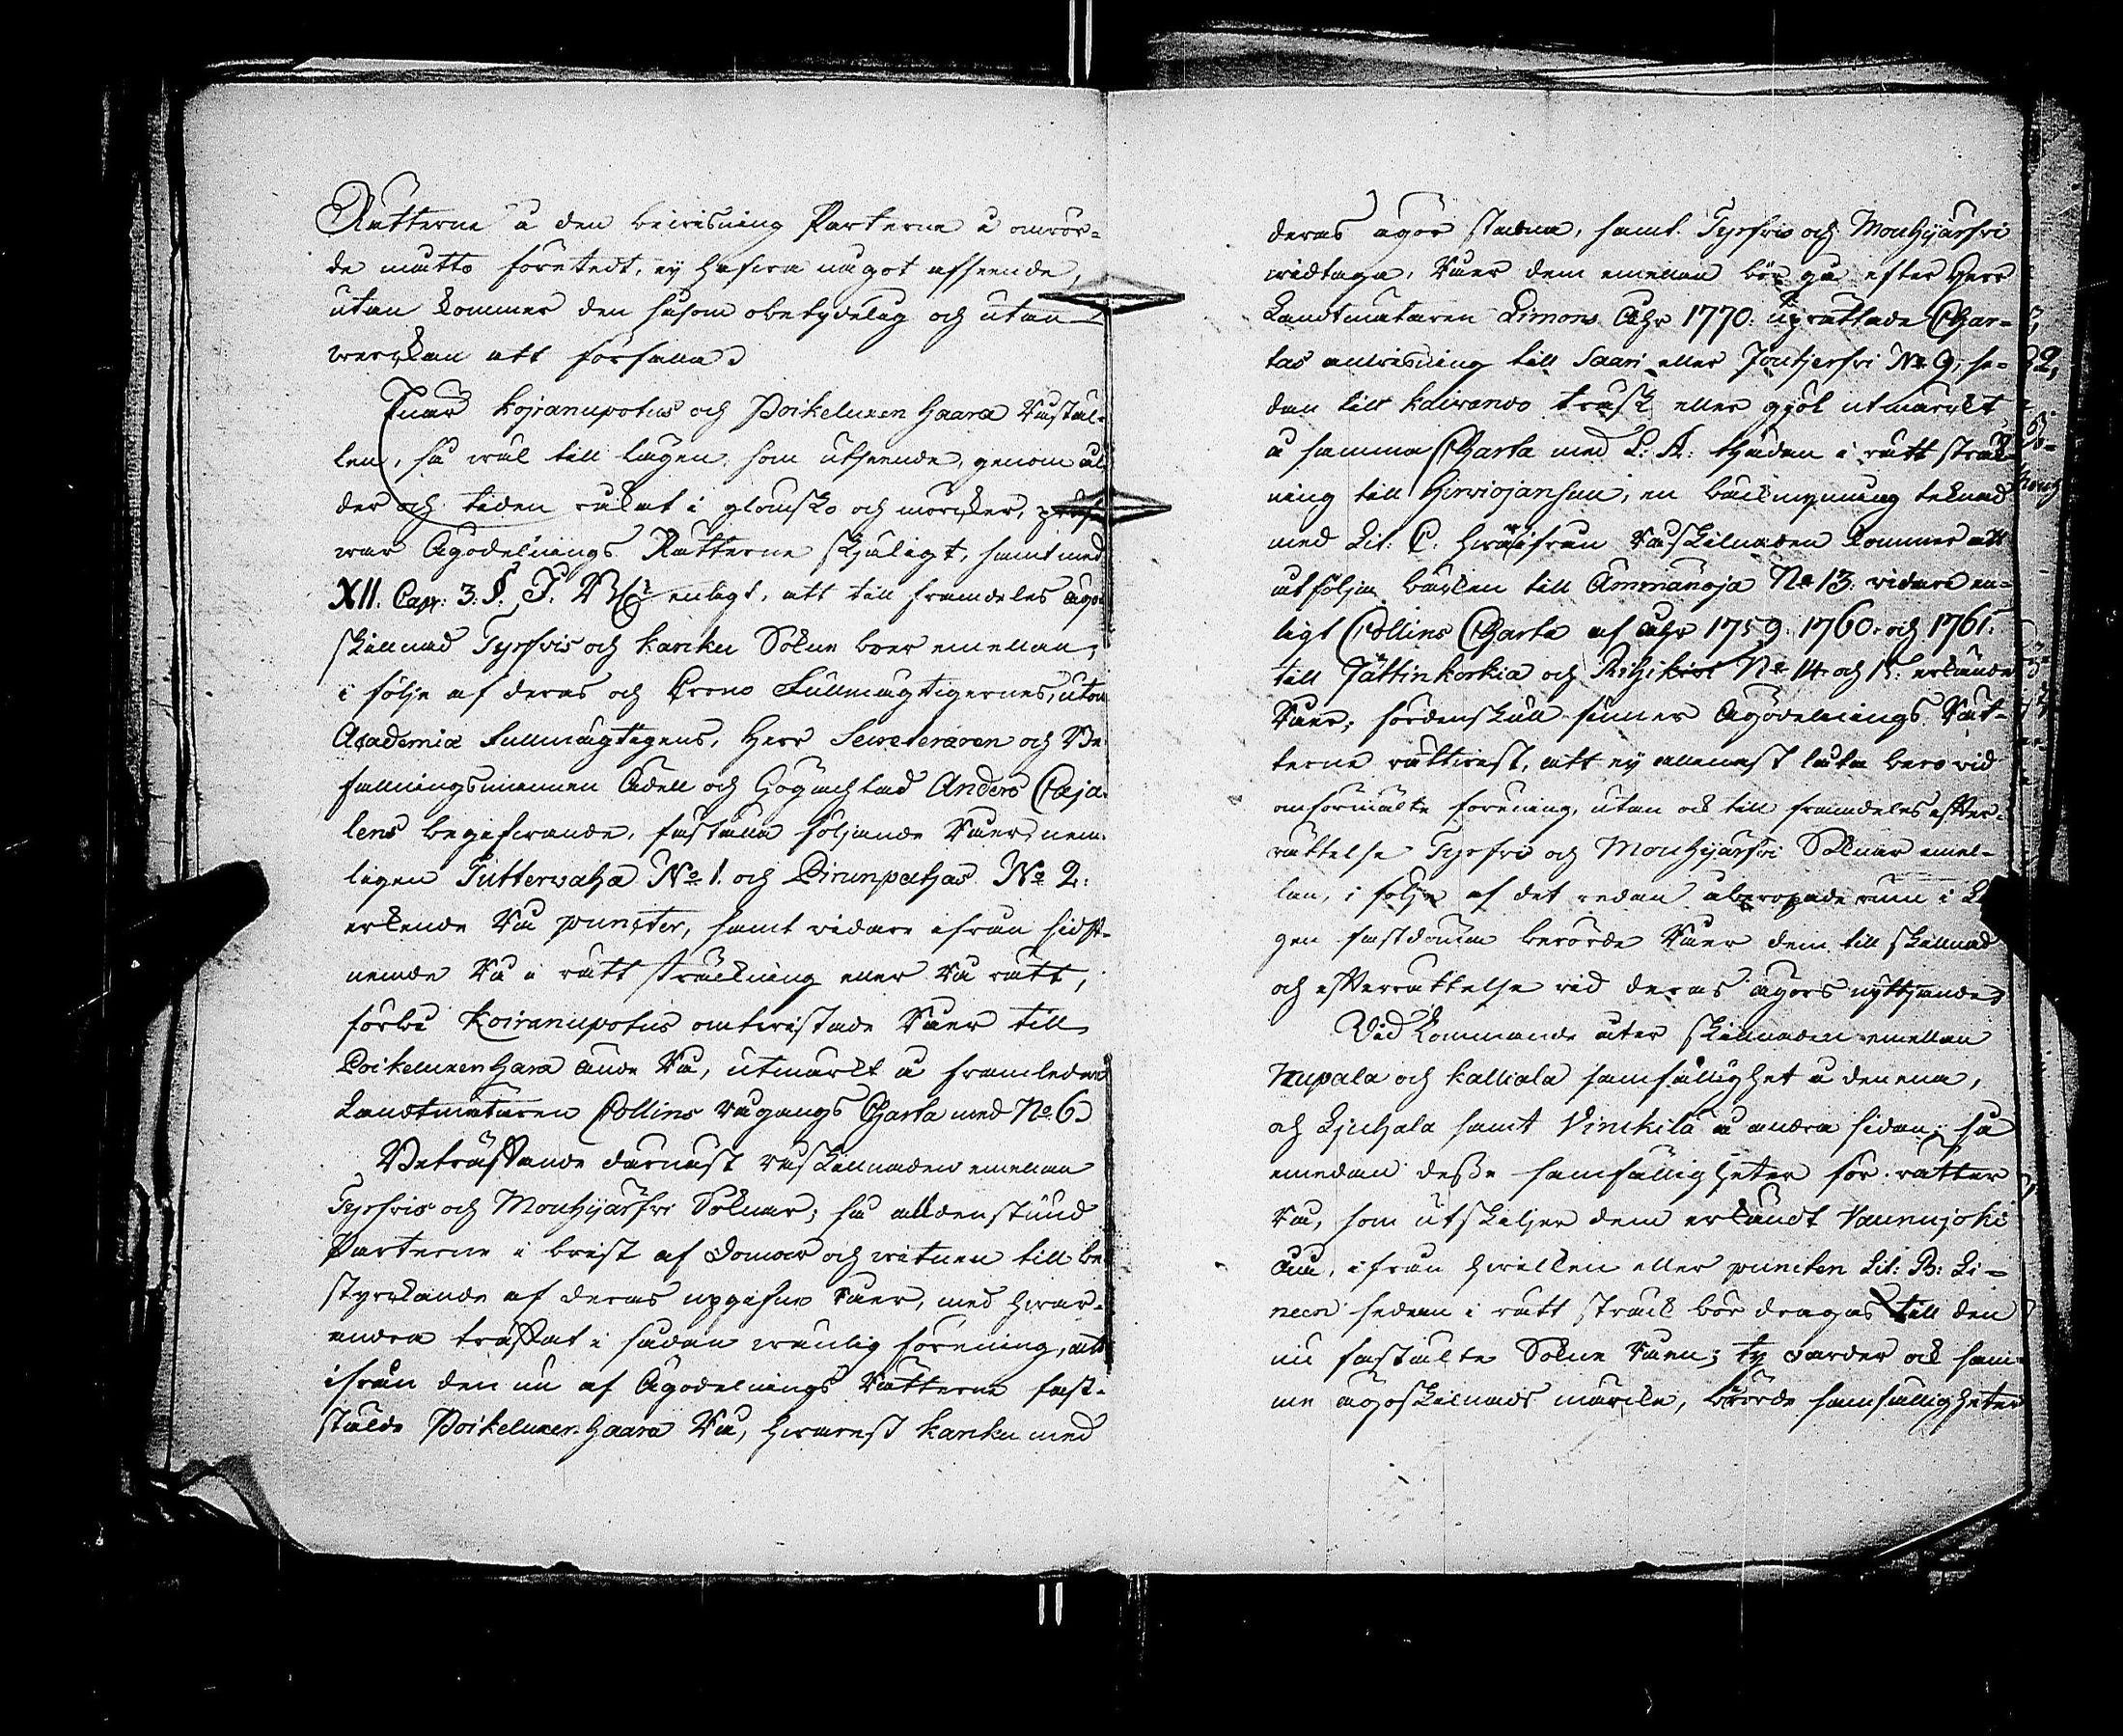 Rätterne å den bevisning Parterne i omrör-
de måtto företedt, ej hafwa något afseende,
utan kommer den såsom obetydelig och utan
werckan att förfalla.
Enär Kojranupotus och Poikeluxen haara Råstäl-
len, så wäl till lägen, som utseende, genom ål-
der och tiden råkat i glömsko och mörcker,
war Ägodelnings Rätterne skjäligt, samt med
XII. Cap: 3. §. J. B. enligt, att till framdeles ägo-
skillnad Tyrfvis och Karku Sokne boer emellan,
i följe af deras och Crono Fullmägtigernes, utom
Academiæ Fullmägtigens, Herr Secreteraren och Be-
fallningsmannen Adell och Häradshöfd Anders Caja-
lens begifwande, faställa följande Råer, nem-
ligen Tuttervaha No 1. och Pirunpesas No 2.
erkende Rå puncter, samt vidare ifrån sidst-
nemde Rå i rätt sträckning eller Rå rätt,
förbi Koiranupotus omtvistade Råer till
Poikeluxen hara ände Rå, utmärkt å framledne
Landtmätaren Collins rågångs Charta med No 6.
Beträffande dernäst råskillnaden emellan
Tyrfvis och Mouhijärfvi Soknar; så alldenstund
Parterne i brist af domar och witnen till be-
styrckande af deras upgifne Råer, med hwar-
andra träffat i sådan wänlig förening, att
ifrån den nu af Ägodelnings Rätterne fast-
stälde Poikeluxen haara Rå, hwarest Karku med
deras ägor stadna, samt Tyrfvis och Mouhijärfvi
widtaga, Råer dem emellan bör gå efter Herr
Landtmätaren Limons Åhr 1770. uprättade Char-
tas anwisning till Saari eller Joutjerfvi No 9, se-
dan till Kaivanvo träsk eller gjöl utmärckt
å samma Charta med L: A: hädan i rätt sträck-
ning till Hirviojansuu, en bäckmynning teknad
med Lit: C. hwarifrån råskilnaden kommer att
utfölja bäcken till Ämmänoja No 13. vidare en-
ligt Collins Charta af åhr 1759. 1760. och 1761.
till Jättinkorkia och Ristikivi No 14 och 15. erkände
Råer; fördenskull finner Ägodelnings Rät-
terne rättvist, att ej allenast låta bero vid
omförmälte förening, utan ock till framdeles efter-
rättelse Tyrfvis och Mouhijärfvi Soknar emel-
lan, i följe af det redan åberopade rum i La-
gen fastdöma berörde Råer dem till skillnad
och efterrättelse vid deras ägors nyttjande.
Vidkommande åter skillnaden emellan
Nupala och Kalliala samfällighet å den ena,
och Liuhala samt Vinkilä å andra sidan; så
emedan desse samfälligheter för rätter
Rå, som utskiljer dem erkändt Vaunujoki
Åa, ifrån hwilken eller puncten Lit: B: Li-
neen sedan i rätt sträck bör dragas till den
nu fastälte Sokne Råen; ty varder ock sam-
me ägoskilnads märcke, berörde samfälligheter